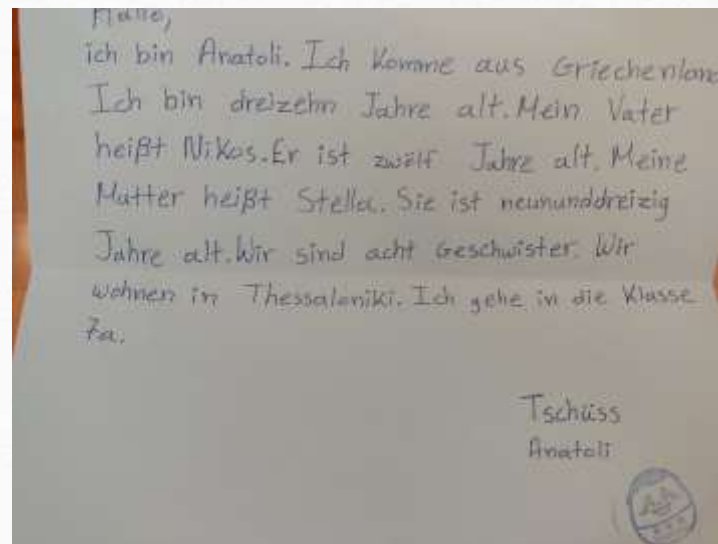 Hallo,
ich bin Anatoli. Ich komme aus Griechenland
Ich bin dreizehn Jahre alt. Mein Vater
heißt Nikos. Er ist zwölf Jahre alt. Meine
Mutter heißt Stella. Sie ist neununddreizig
Jahre alt. Wir sind acht Geschwister. Wir
wohnen in Thessaloniki. Ich gehe in die Klasse
7a.
Tschüss
Anatoli